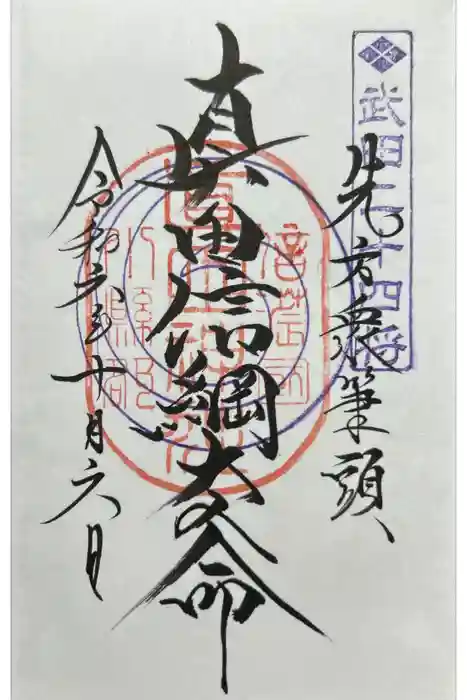 武田二十四将
先方衆筆頭、
真田信綱大命
令和六年十月六日